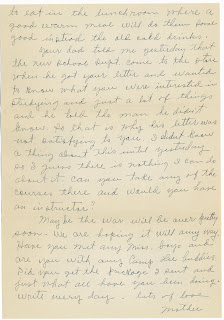 to eat in the lunchroom where a
good warm meal will do them some
good instead the old cold drinks.
Your dad told me yesterday that
the new school Supt. come to the store
when he got your letter and wanted
to know what you were interested in
studying and just a lot of things
and he told the man he didn't
know. So that is why his letter was
not satisfying to you. I didn't know
a thing about this until yesterday
so I guess there is nothing I can do
about it. Can you take any of the
courses there and would you have
an instructor?
Maybe the war will be over pretty
soon. We are hoping it will any way.
Have you met any Miss. boys and
are you with any Camp Lee buddies.
Did you get the package I sent and
just what all have you been doing.
Write every day. lots of love
Mother